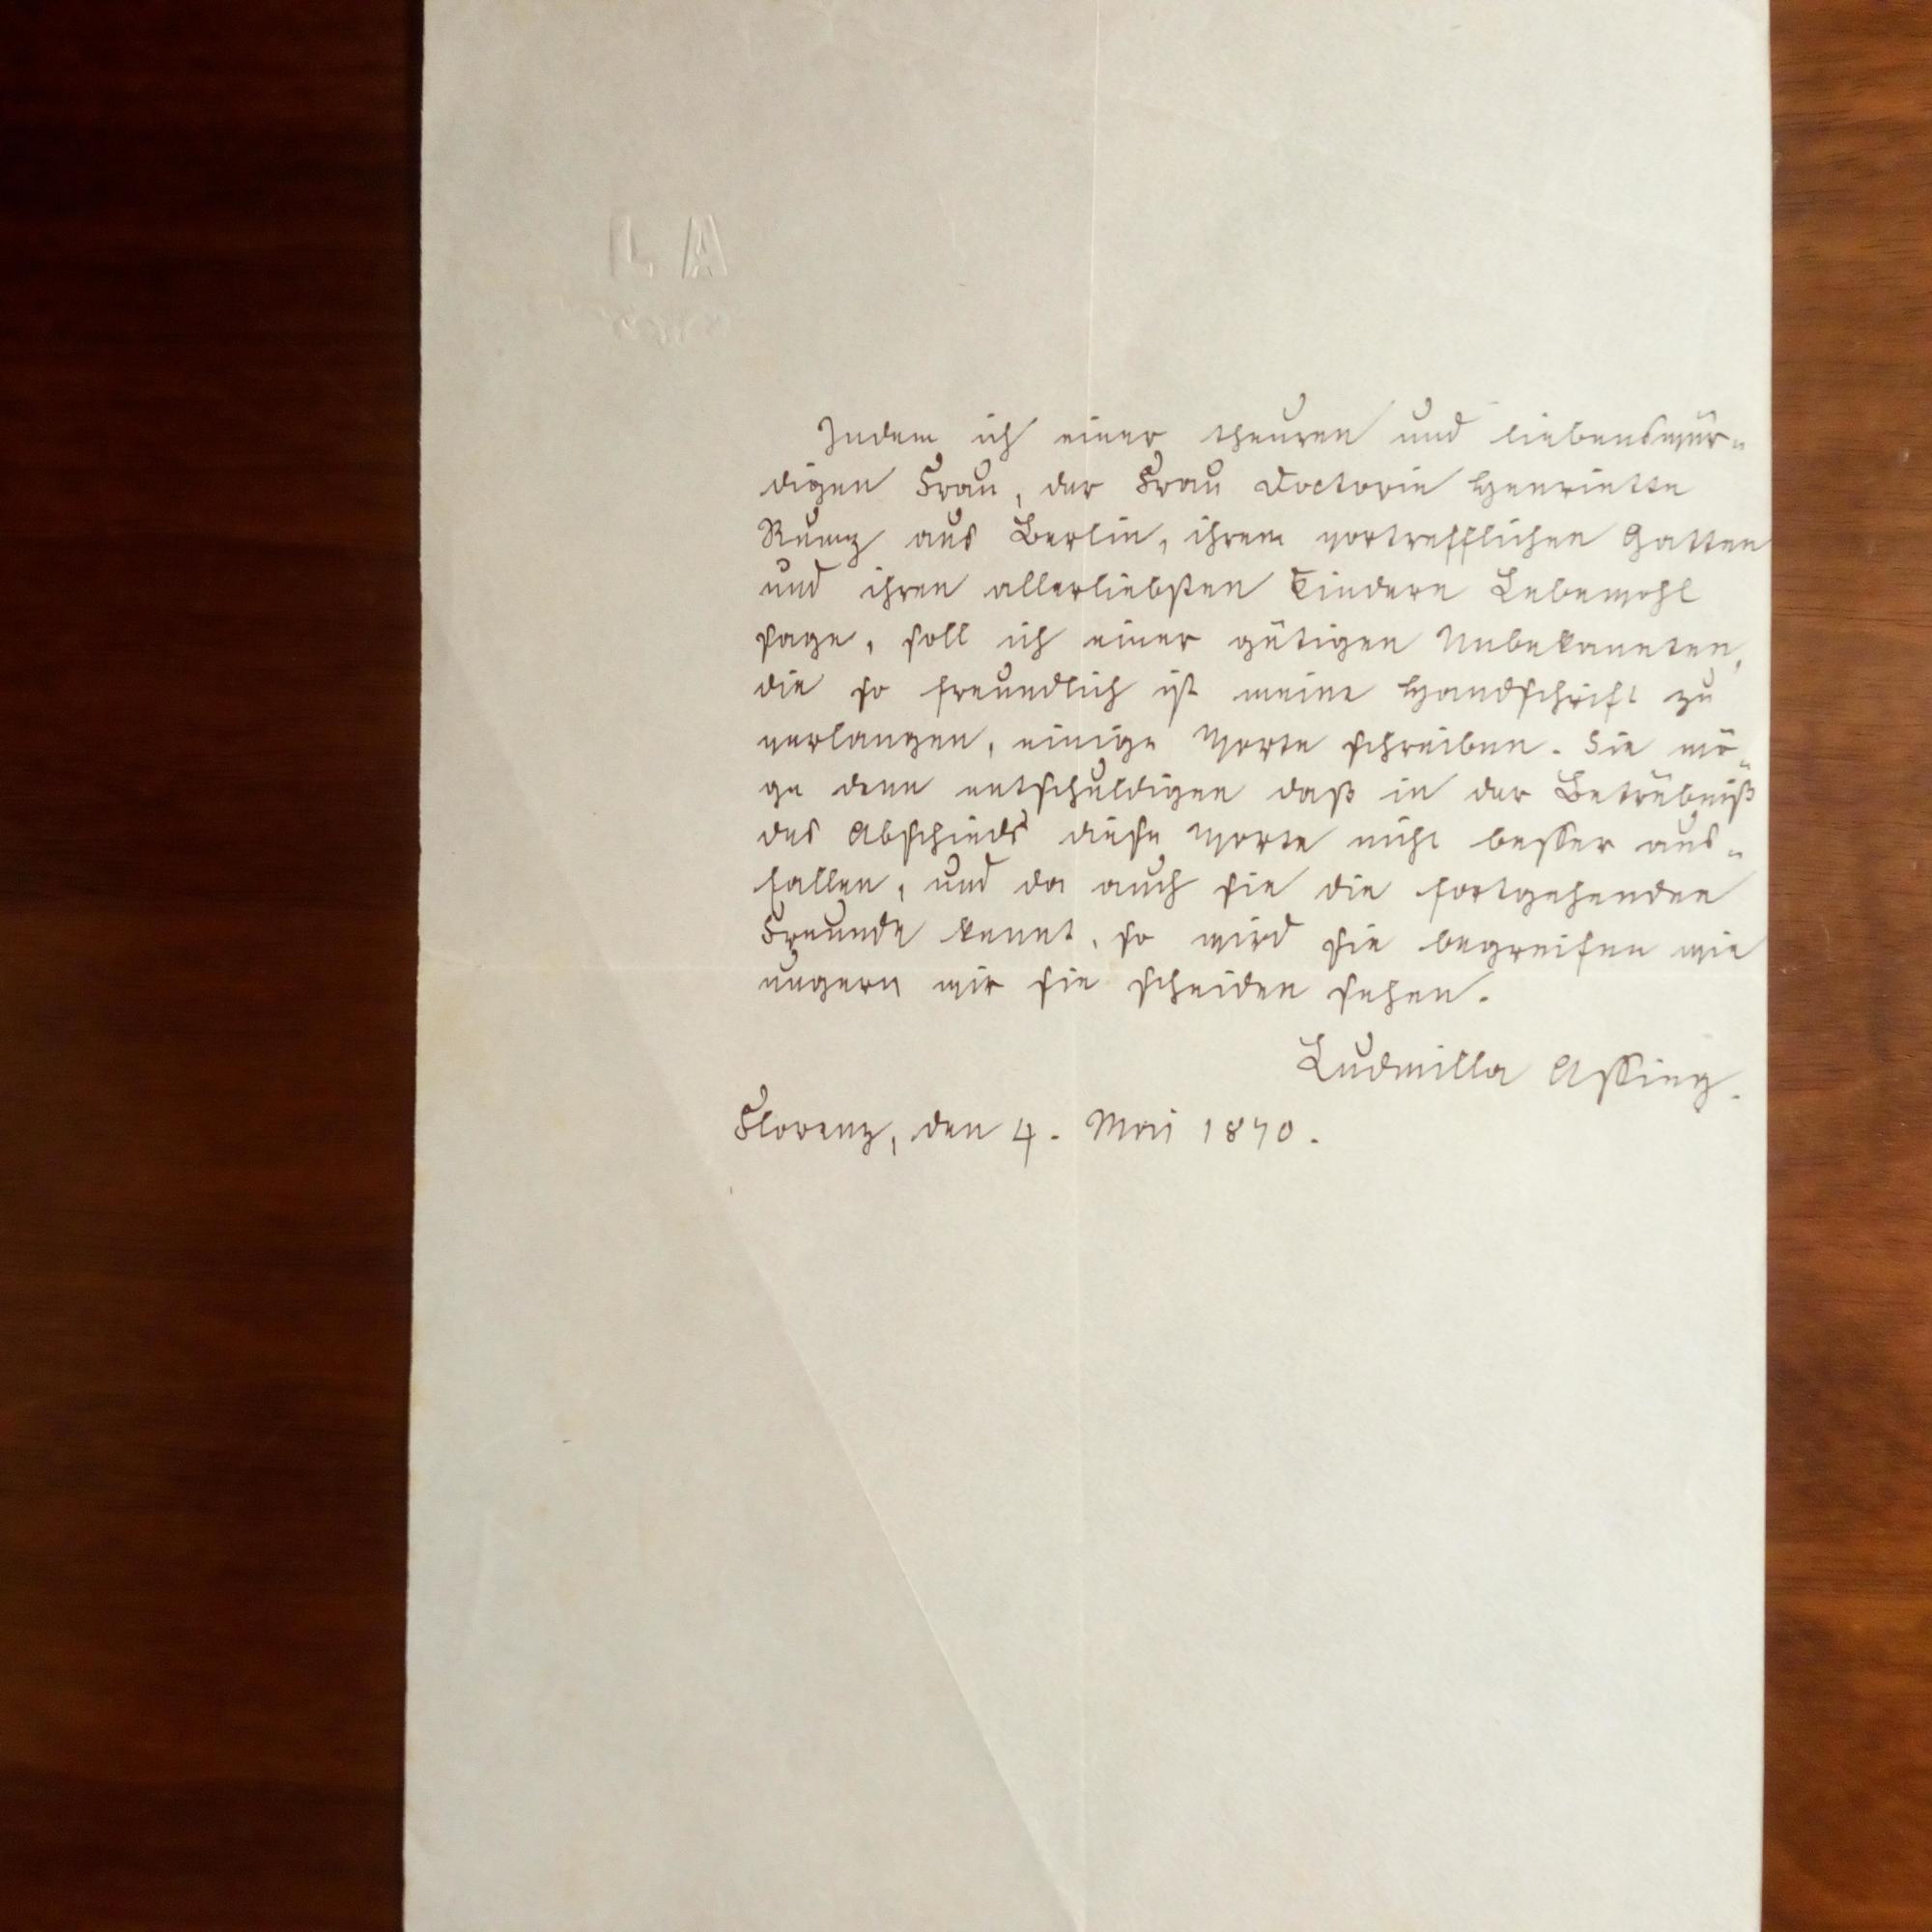 L A
Indem ich einer theuren und liebenswür-
digen Frau, der Frau Doctorin Henriette
aus Berlin, ihrem vortrefflichen Gatten
und ihren allerliebsten Kindern Lebewohl
sage, soll ich einer gütigen Unbekannten,
die so freundlich ist meine Handschrift zu
verlangen, einige Worte schreiben. Sie mö-
ge denn entschuldigen daß in der Betrübniß
des Abschieds diese Worte nicht besser aus-
fallen, und da auch sie die fortgehenden
Freunde kennt, so wird sie begreifen wie
ungern wir sie scheiden sehen.
Ludmilla Assing.
Florenz, den 4. Mai 1870.